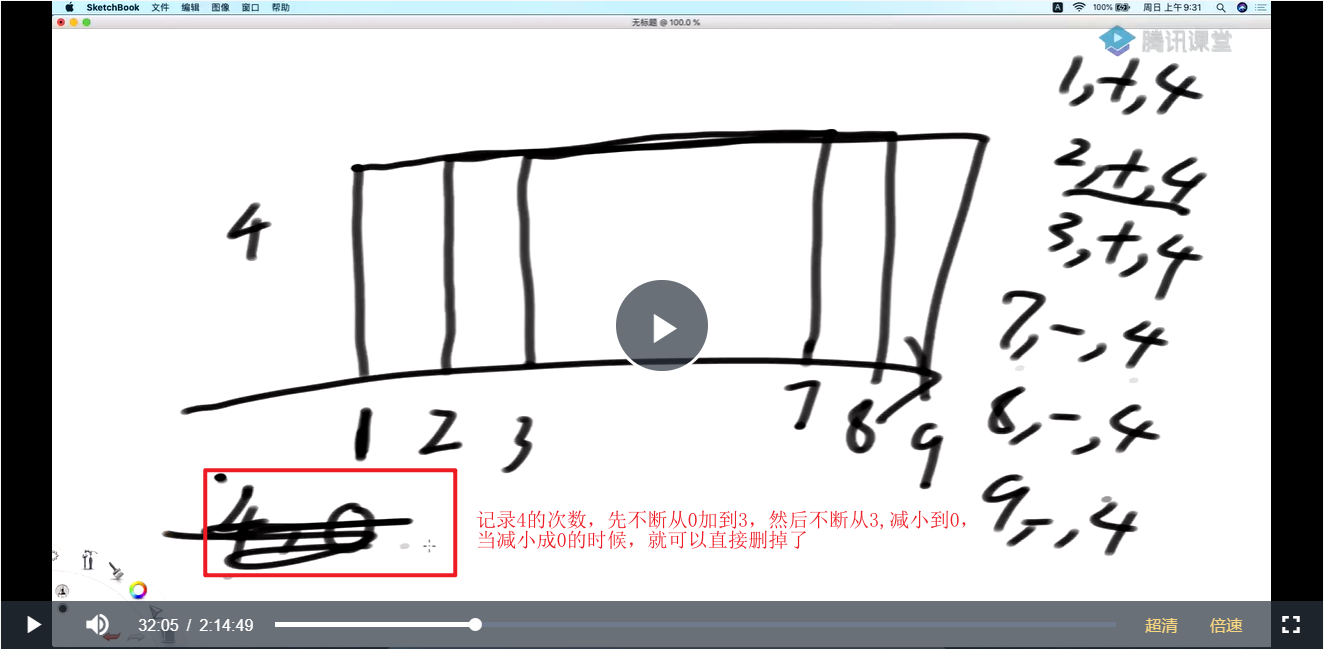 SketchBook 文件 编辑 图像 窗口 帮助 A 100% 周日上午9:31
无标题 @ 100.0 %
腾讯课堂
1,+,4
2,+,4
3,+,4
7,-,4
8,-,4
9,-,4
4
1 2 3 7 8 9
4,0
记录4的次数，先不断从0加到3，然后不断从3,减小到0，
当减小成0的时候，就可以直接删掉了
32:05 / 2:14:49 超清 倍速